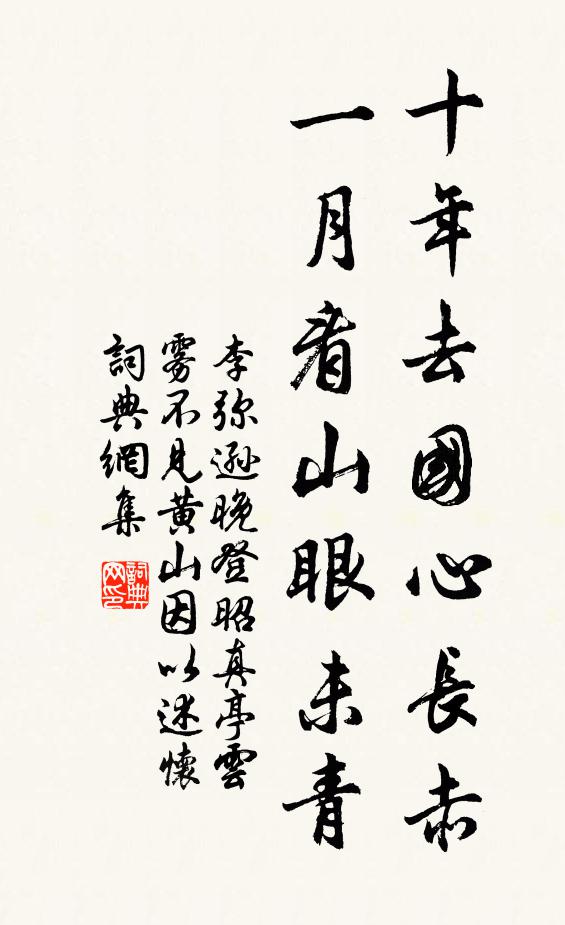 十年去國心長赤
一月看山眼未青
李弥遜晚登昭真亭雲
霧不見黃山因以述懷
詞典網集
詞典网印